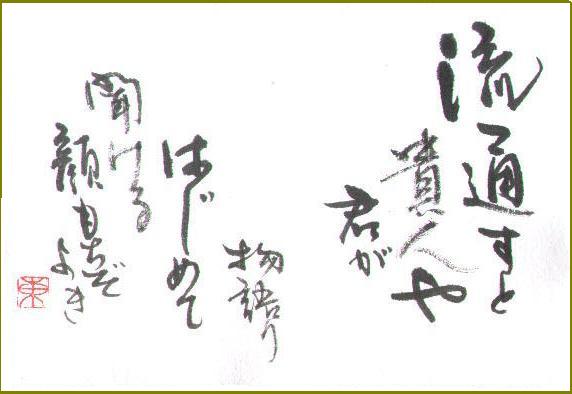 流通すと
貴人や
君が
物語り
はじめて
聞ける
顔もちぞ
よき
東